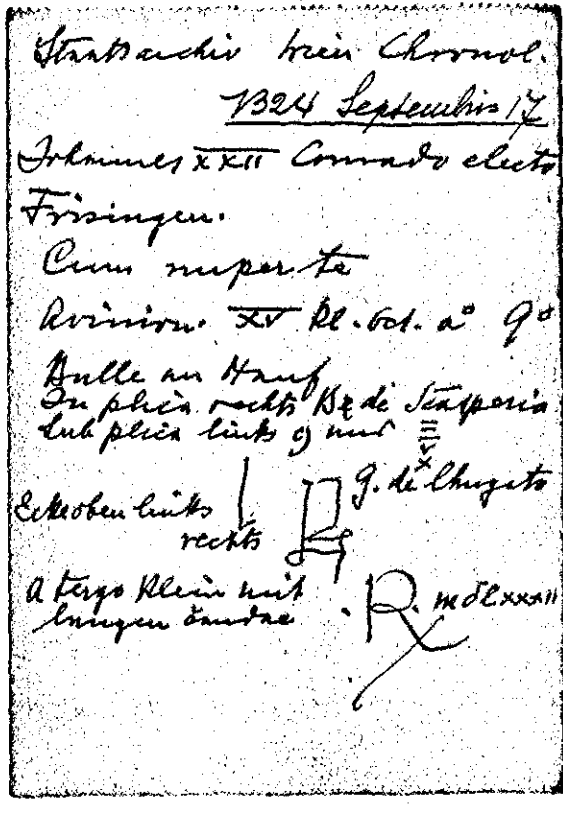 Staatsarchiv Wien Chronol.
1324 Septembris 17
Johannes XXII Conrado electo
Frisingen.
Cum nuper te
Avinion. XV Kl. Oct. a° 9°
Bulle an Hanf
In plica rechts B de Scarperia
Sub plica links g mus
x
G. de
Ecke oben links
rechts
A tergo klein mit
langen caudae
. R. mdlxxxii